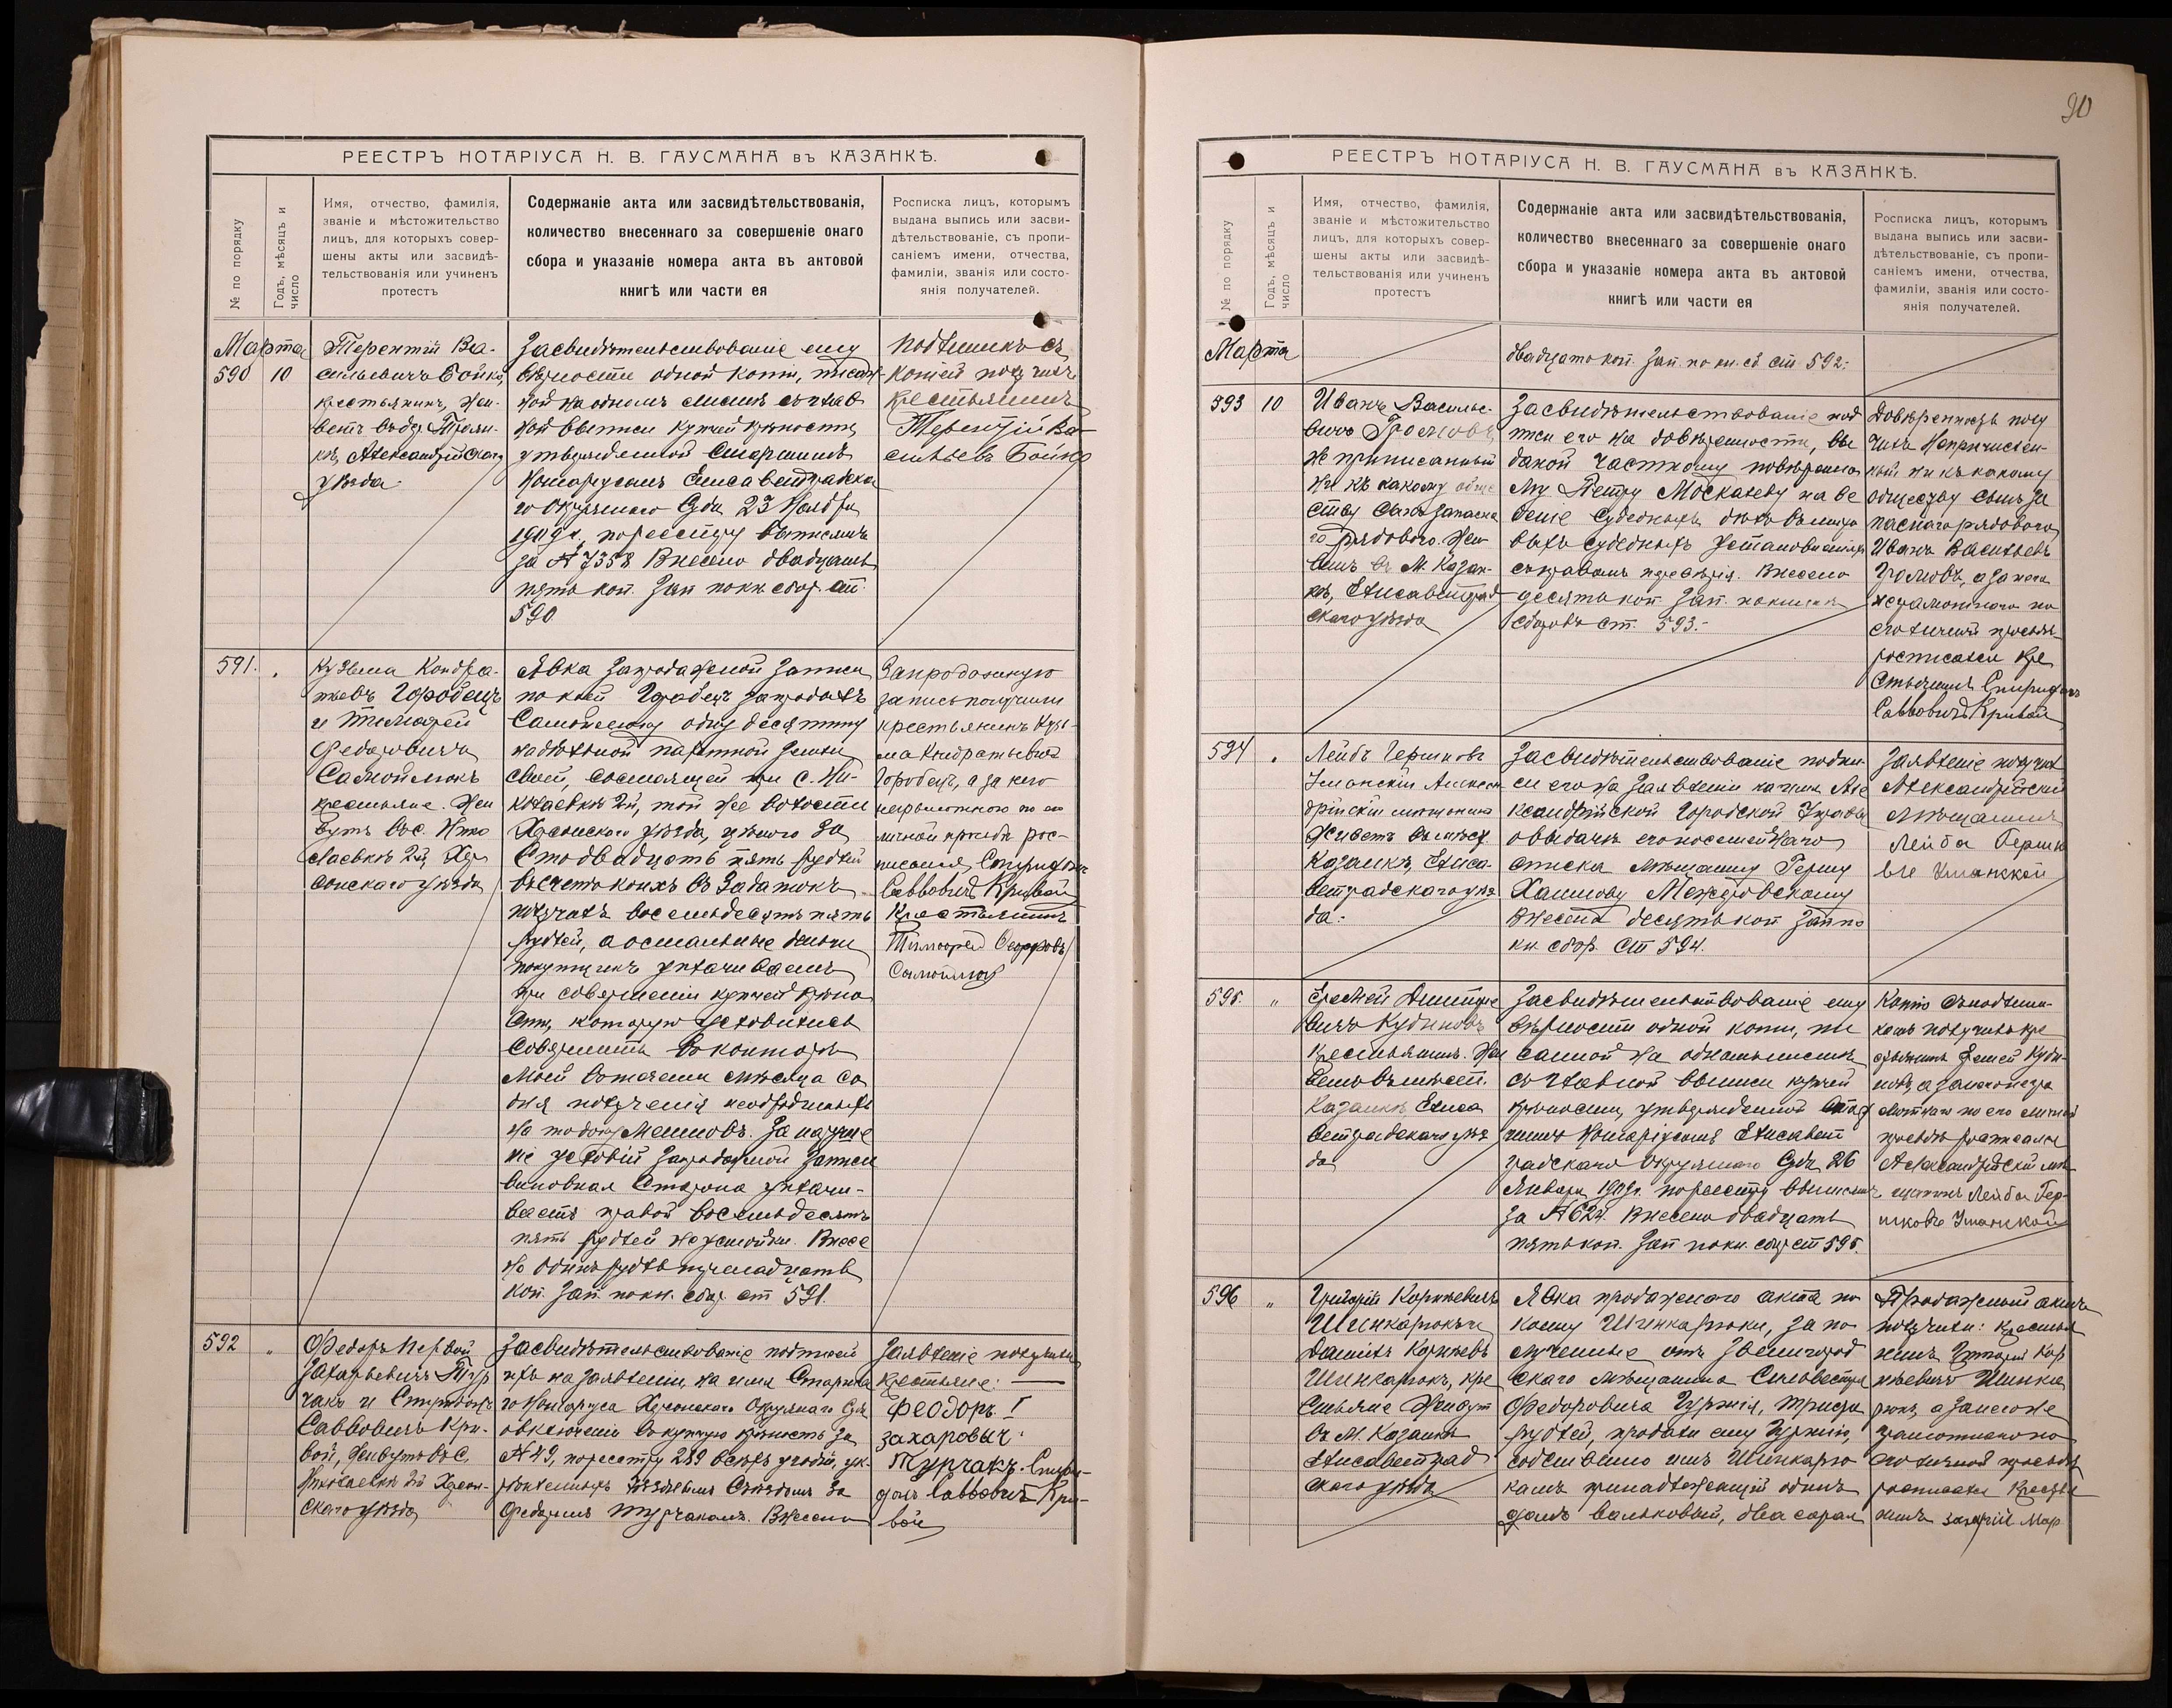 РЕЕСТРЪ НОТАРІУСА Н. В. ГАУСМАНА въ КАЗАНКѢ.
№ по порядку
Годъ, мѣсяцъ и
число
Имя, отчество, фамилія,
званіе и мѣстожительство
лицъ, для которыхъ совер-
шены акты или засвидѣ-
тельствованія или учиненъ
протестъ
Содержаніе акта или засвидѣтельствованія,
количество внесеннаго за совершеніе онаго
сбора и указаніе номера акта въ актовой
книгѣ или части ея
Росписка лицъ, которымъ
выдана выпись или засви-
дѣтельствованіе, съ пропи-
саніемъ имени, отчества,
фамиліи, званія или состо-
янія получателей.
Марта
590 10
Терентій Ва-
сильевичъ Бойко,
крестьянинъ, жи-
ветъ въ
Александрійскаго
уѣзда
Засвидѣтельствованіе ему
вѣрности одной копіи, писан-
ной на одномъ листѣ съ глав
ной выписи купчей крѣпости,
утвержденной Старшимъ
Нотаріусомъ Елисаветградска
го Окружнаго Суда 23 Ноября
1909 г., по реестру
за № 7358 Внесено двадцать
пять коп. Зап по кн. сбор. ст.
590
Подлинникъ съ
копіей получилъ
крестьянинъ
Терентій Ва-
сильевъ Бойко
591.
Кузьма Кондра-
тьевъ Городецъ
и Тимофей
Федоровичъ
Самойлюкъ
крестьяне. Жи
вутъ въ с. Нико
лаевкѣ 2й, Хер
сонскаго уѣзда
Явка запродажной записи
по коей Городецъ запродалъ
Самойлюку одну десятину
надѣльной пахотной земли
своей, состоящей при с. Ни-
колаевкѣ 2й, той же волости
Херсонскаго уѣзда, цѣною за
Сто двадцать пять рублей
въ счетъ коихъ въ задатокъ
получилъ восемьдесятъ пять
рублей, а остальные деньги
покупщикъ уплачиваетъ
при совершеніи купчей крѣпо
сти, которую условились
совершить въ конторѣ
моей въ теченіи мѣсяца со
дня полученія необходимыхъ
на то документовъ. За наруше
ніе условій запродажной записи
виновная сторона уплачи-
ваетъ правой восемьдесятъ
пять рублей неустойки. Внесе
но одинъ рубль
коп. Зап. по кн. сбор. ст 591.
Запродажную
запись получили
крестьянинъ Кузь-
ма Кондратьевъ
Городецъ, а за него
неграмотнаго по его
личной просьбѣ рос-
писался Спиридонъ
Саввовичъ Кривой
Крестьянинъ
Тимофей Федоровъ
Самойлюкъ
592 "
Федоръ Первой
Захарьевичъ Тур
чакъ и Спиридонъ
Саввовичъ Кри-
вой, живутъ въ с.
Николаевкѣ 2й Херсон-
скаго уѣзда
Засвидѣтельствованіе подписей
ихъ на заявленіи, на имя Старша
го Нотаріуса Херсонскаго Окружнаго Суда
о включеніи въ купчую крѣпость за
№ 49, по реестру 289 всѣхъ угодій, ук
рѣпленныхъ Съѣздомъ за
Федоромъ Турчакомъ. Внесено
Заявленіе получили
крестьяне:
Феодоръ I
захаровыч
Турчакъ. Спири-
донъ Саввовичъ Кри-
вой
90
РЕЕСТРЪ НОТАРІУСА Н. В. ГАУСМАНА въ КАЗАНКѢ.
№ по порядку
Годъ, мѣсяцъ и
число
Имя, отчество, фамилія,
званіе и мѣстожительство
лицъ, для которыхъ совер-
шены акты или засвидѣ-
тельствованія или учиненъ
протестъ
Содержаніе акта или засвидѣтельствованія,
количество внесеннаго за совершеніе онаго
сбора и указаніе номера акта въ актовой
книгѣ или части ея
Росписка лицъ, которымъ
выдана выпись или засви-
дѣтельствованіе, съ пропи-
саніемъ имени, отчества,
фамиліи, званія или состо-
янія получателей.
Марта
двадцать коп. Зап. по кн. сб. ст. 592.
593 10
Иванъ Василье-
вичъ
не приписанный
ни къ какому обще
ству сынъ запасна
го рядового. Жи
ветъ въ М. Казан-
кѣ, Елисаветград
скаго уѣзда
Засвидѣтельствованіе под
писи его на довѣренности, вы
данной частному повѣренно
му Петру Москалеву на ве
деніе судебныхъ дѣлъ въ
судебныхъ установленіяхъ
съ правомъ передовѣрія. Внесено
десять коп. Зап. по книгѣ
сборовъ ст. 593.-
Довѣренность полу
чилъ Непричислен-
ный ни къ какому
обществу сынъ за
паснаго рядового
Иванъ Васильевъ
а за него
неграмотнаго по
его личной просьбѣ
росписался кре
стьянинъ Спиридонъ
Саввовичъ Кривой
594
Лейбъ Гершковъ
Уманскій Алексан
дрійскій мѣщанинъ
Живетъ въ мѣст.
Казанкѣ, Елиса-
ветградскаго уѣз
да.
Засвидѣтельствованіе подпи-
си его на заявленіи на имя Але
ксандрійской Городской Управы
о выдачѣ его посемейнаго
списка мѣщанину Гершу
Хаимову
Внесено десять коп Зап по
кн сбор. ст 594.
Заявленіе получилъ
Александрійскій
Мѣщанинъ
Лейба Гершко
въ Уманскій
595. "
Дмитріе
вичъ Кудиновъ
Крестьянинъ. Жи
ветъ въ мѣст.
Казанкѣ, Елиса
ветградскаго уѣз
да
Засвидѣтельствованіе ему
вѣрности одной копіи, пи
санной на одномъ листѣ
съ главной выписи купчей
крѣпости, утвержденной Стар
шимъ Нотаріусомъ Елисавет
градскаго Окружнаго Суда 26
Января 1909 г. по реестру
за № 624. Внесено двадцать
пять коп. Зап по кн. сбор ст 595.
Копію съ подлин-
комъ получилъ кре
стьянинъ Куди-
новъ, а за него негра
мотнаго по его личной
просьбѣ росписался
Александрійскій мѣ
щанинъ Лейба Гер-
шковъ Уманскій
596 "
Григорій Корнѣевичъ
Шинкарюкъ и
Даніилъ Корнѣевъ
Шинкарюкъ, кре
стьяне Живутъ
въ М. Казанкѣ
Елисаветград
скаго уѣзда
Явка продажнаго акта по
коему Шинкарюки, за по
лученные отъ Звенигород
скаго мѣщанина Сильвестра
Федоровича Гуржія, триста
рублей, продали ему Гуржію,
собственно имъ Шинкарю
камъ принадлежащій одинъ
домъ вальковый, два сарая
Продажный актъ
получили: крестья
нинъ Григорій Кор
нѣевичъ Шинка
рюкъ, а за него не
грамотнаго по
его личной просьбѣ
росписался Крестья
нинъ Мар